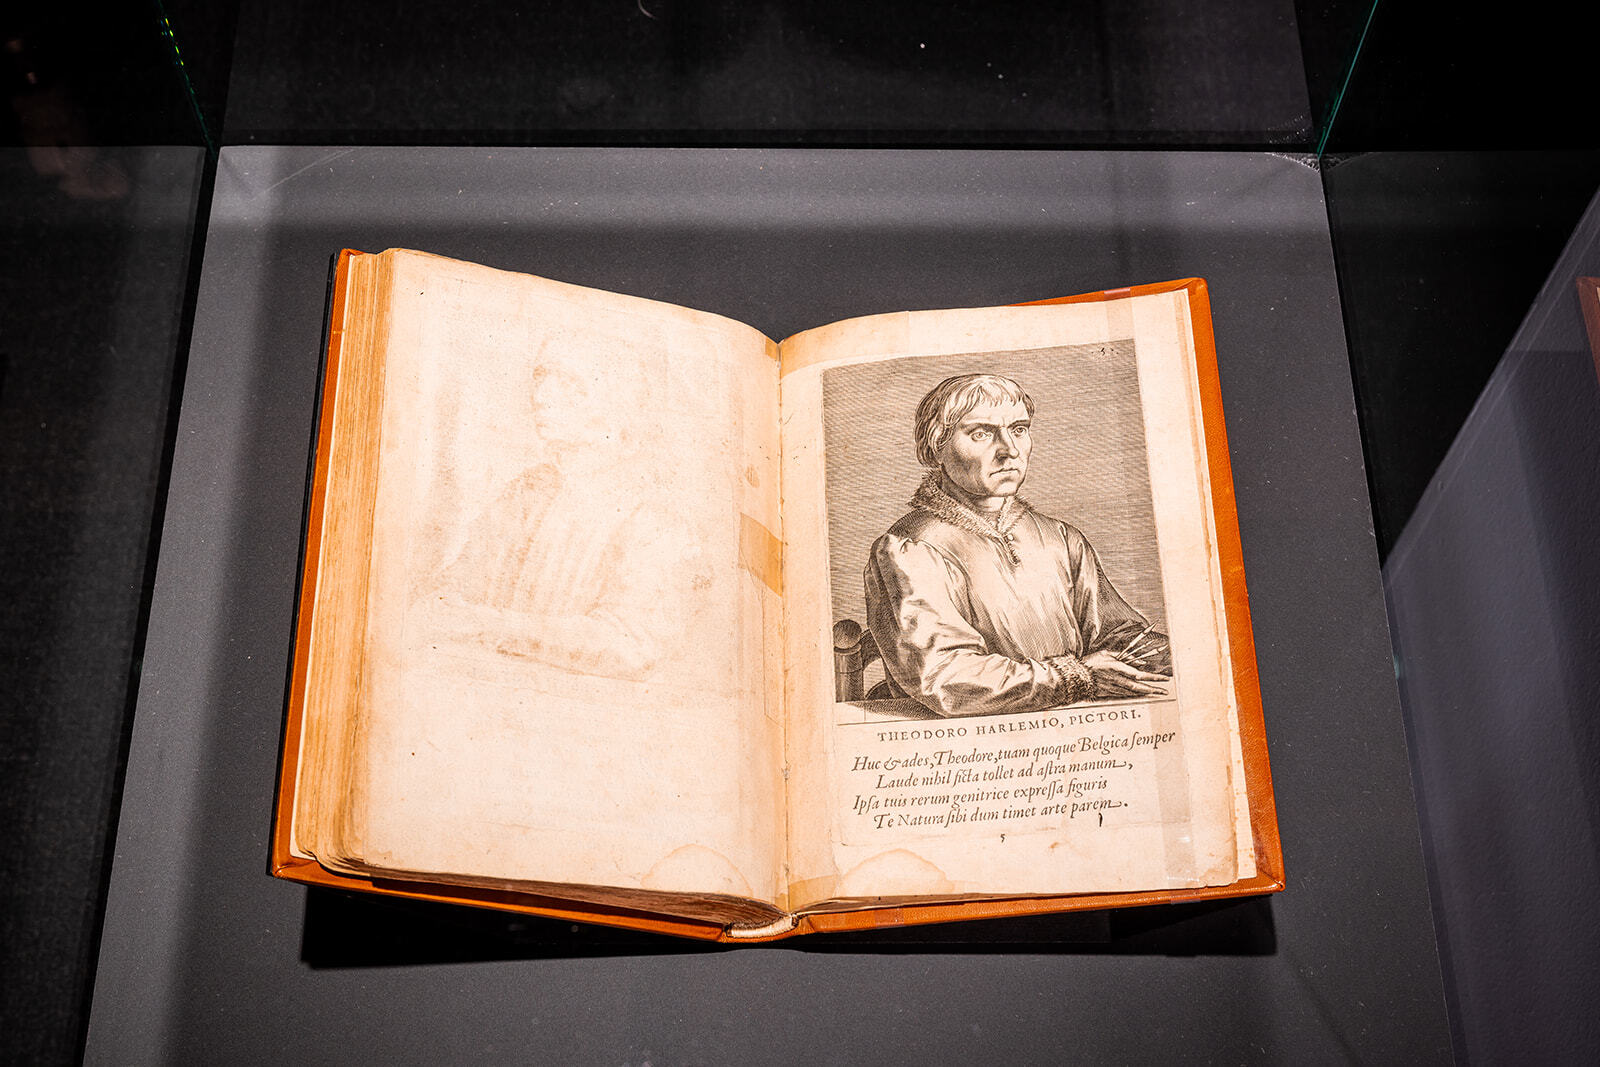 THEODORO HARLEMIO, PICTORI.
Huc & ades, Theodore, tuam quoque Belgica ſemper
Laude nihil ficta tollet ad aſtra manum,
Ipſa tuis rerum genitrice expreſſa figuris
Te Natura ſibi dum timet arte parem.
5